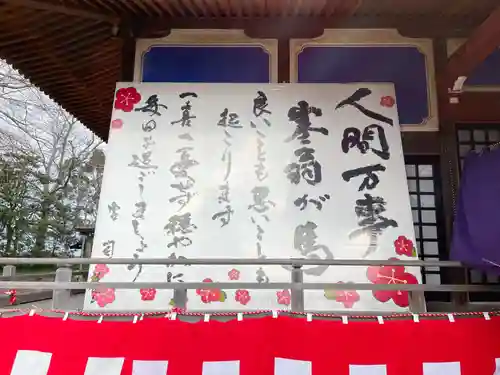 人間万事
塞翁が馬
良いことも悪いことも
起こります
一喜一憂せず穏やかに
毎日を過ごしましょう
宮司